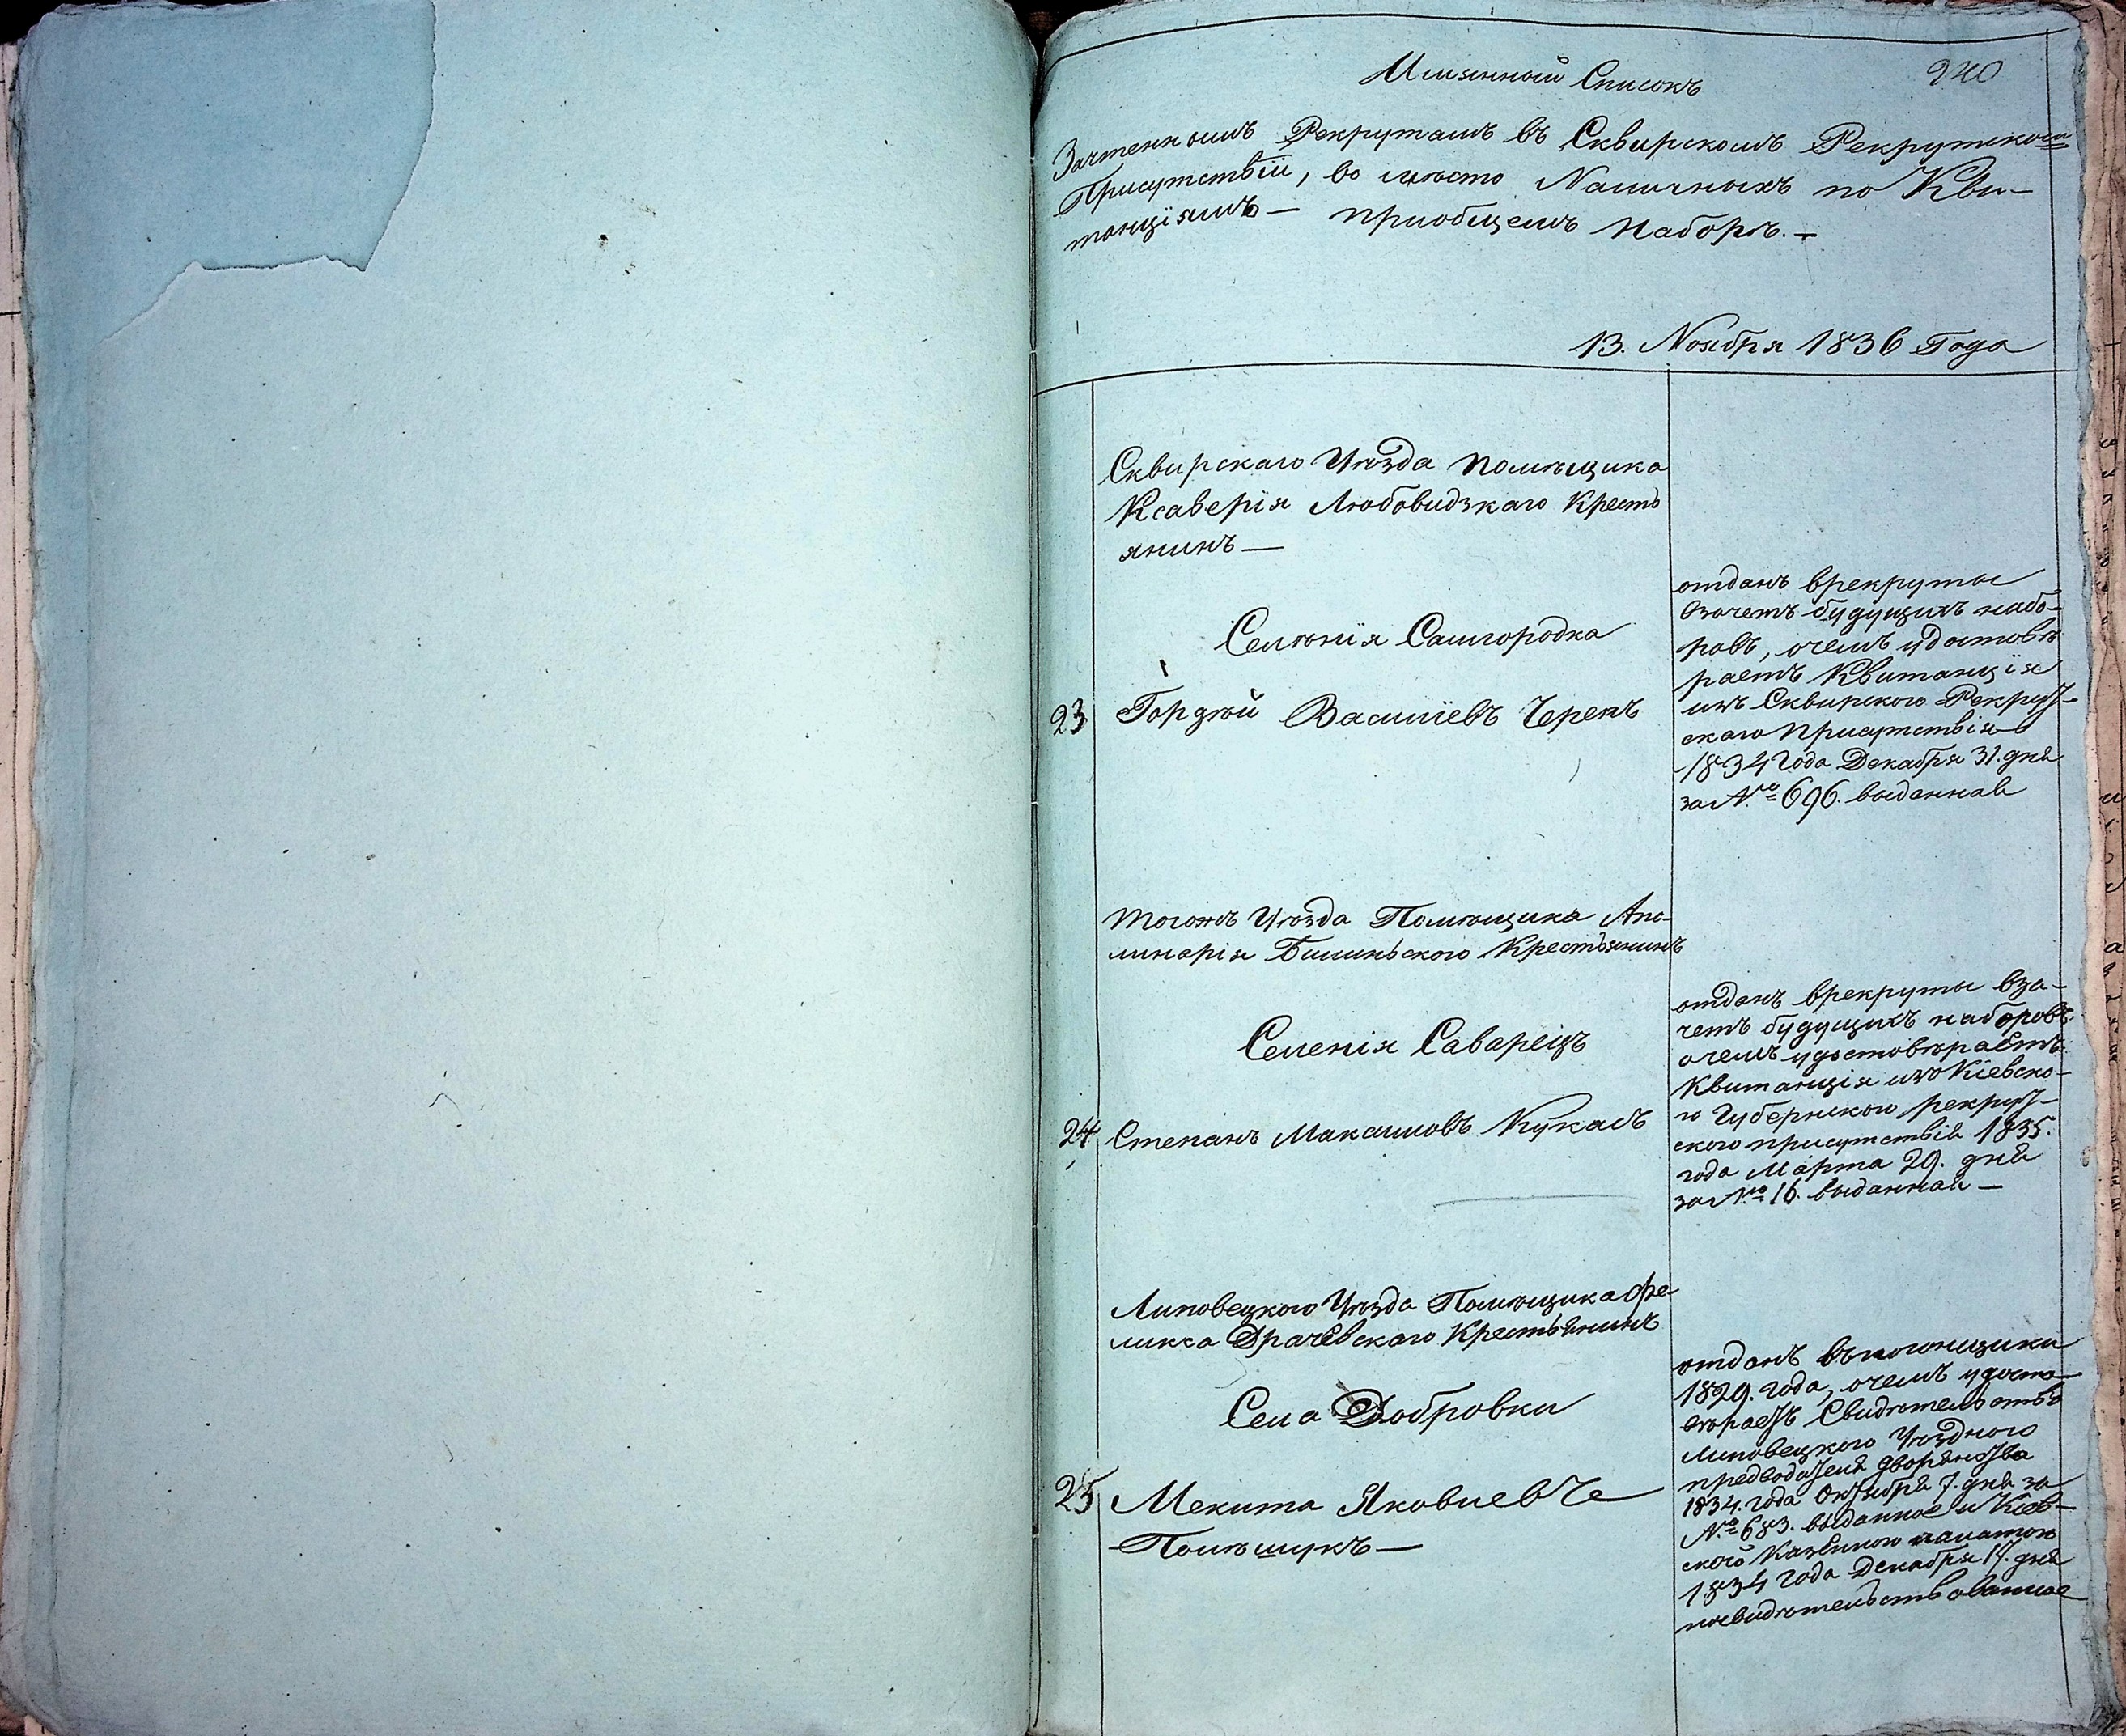 Имянной Списокъ
240
Зачтеннымъ Рекрутамъ въ Сквирскомъ Рекрутском
Присутствіи, во мѣсто Наличныхъ по Кви-
танціямъ — приобщемъ Наборѣ. —
13. Ноября 1836 Года
Сквирскаго Уѣзда Помѣщика
Ксаверія Любовидзкаго Кресть
янинъ —
Селѣнія Самгородка
23 Гордѣй Василіевъ Черекъ
отданъ врекруты
взачетъ будущихъ набо-
ровъ, очемъ удостовѣ
раетъ Квитанція
изъ Сквирского Рекрут-
скаго Присутствія
1834 Года Декабря 31. дня
за №= 696. выданная
Тогожъ Уѣзда Помѣщика Апо-
линарія Билинского Крестьянинъ
Селенія Саварецъ
24 Степанъ Максимовъ Кукаль
отданъ врекруты вза-
четъ будущихъ наборовъ
очемъ удостовѣраетъ
Квитанція изъ Кіевско-
го Губернского рекрут-
ского присутствія 1835.
года Марта 29. дня
за №= 16. выданная —
Липовецкого Уѣзда Помѣщика Фе-
ликса Драчевскаго Крестьянинъ
Села Добровки
25 Мекита Яковлевъ
Полѣщукъ —
отданъ въ погонщики
1829. года, очемъ удосто-
вѣраетъ Свидѣтельство
Липовецкого Уѣздного
предводителя дворянства
1834. года Октября 7. дня за
№= 683. выданное и Кіев-
ской Казенною палатою
1834 года Декабря 17. дня
посвидѣтельствованное